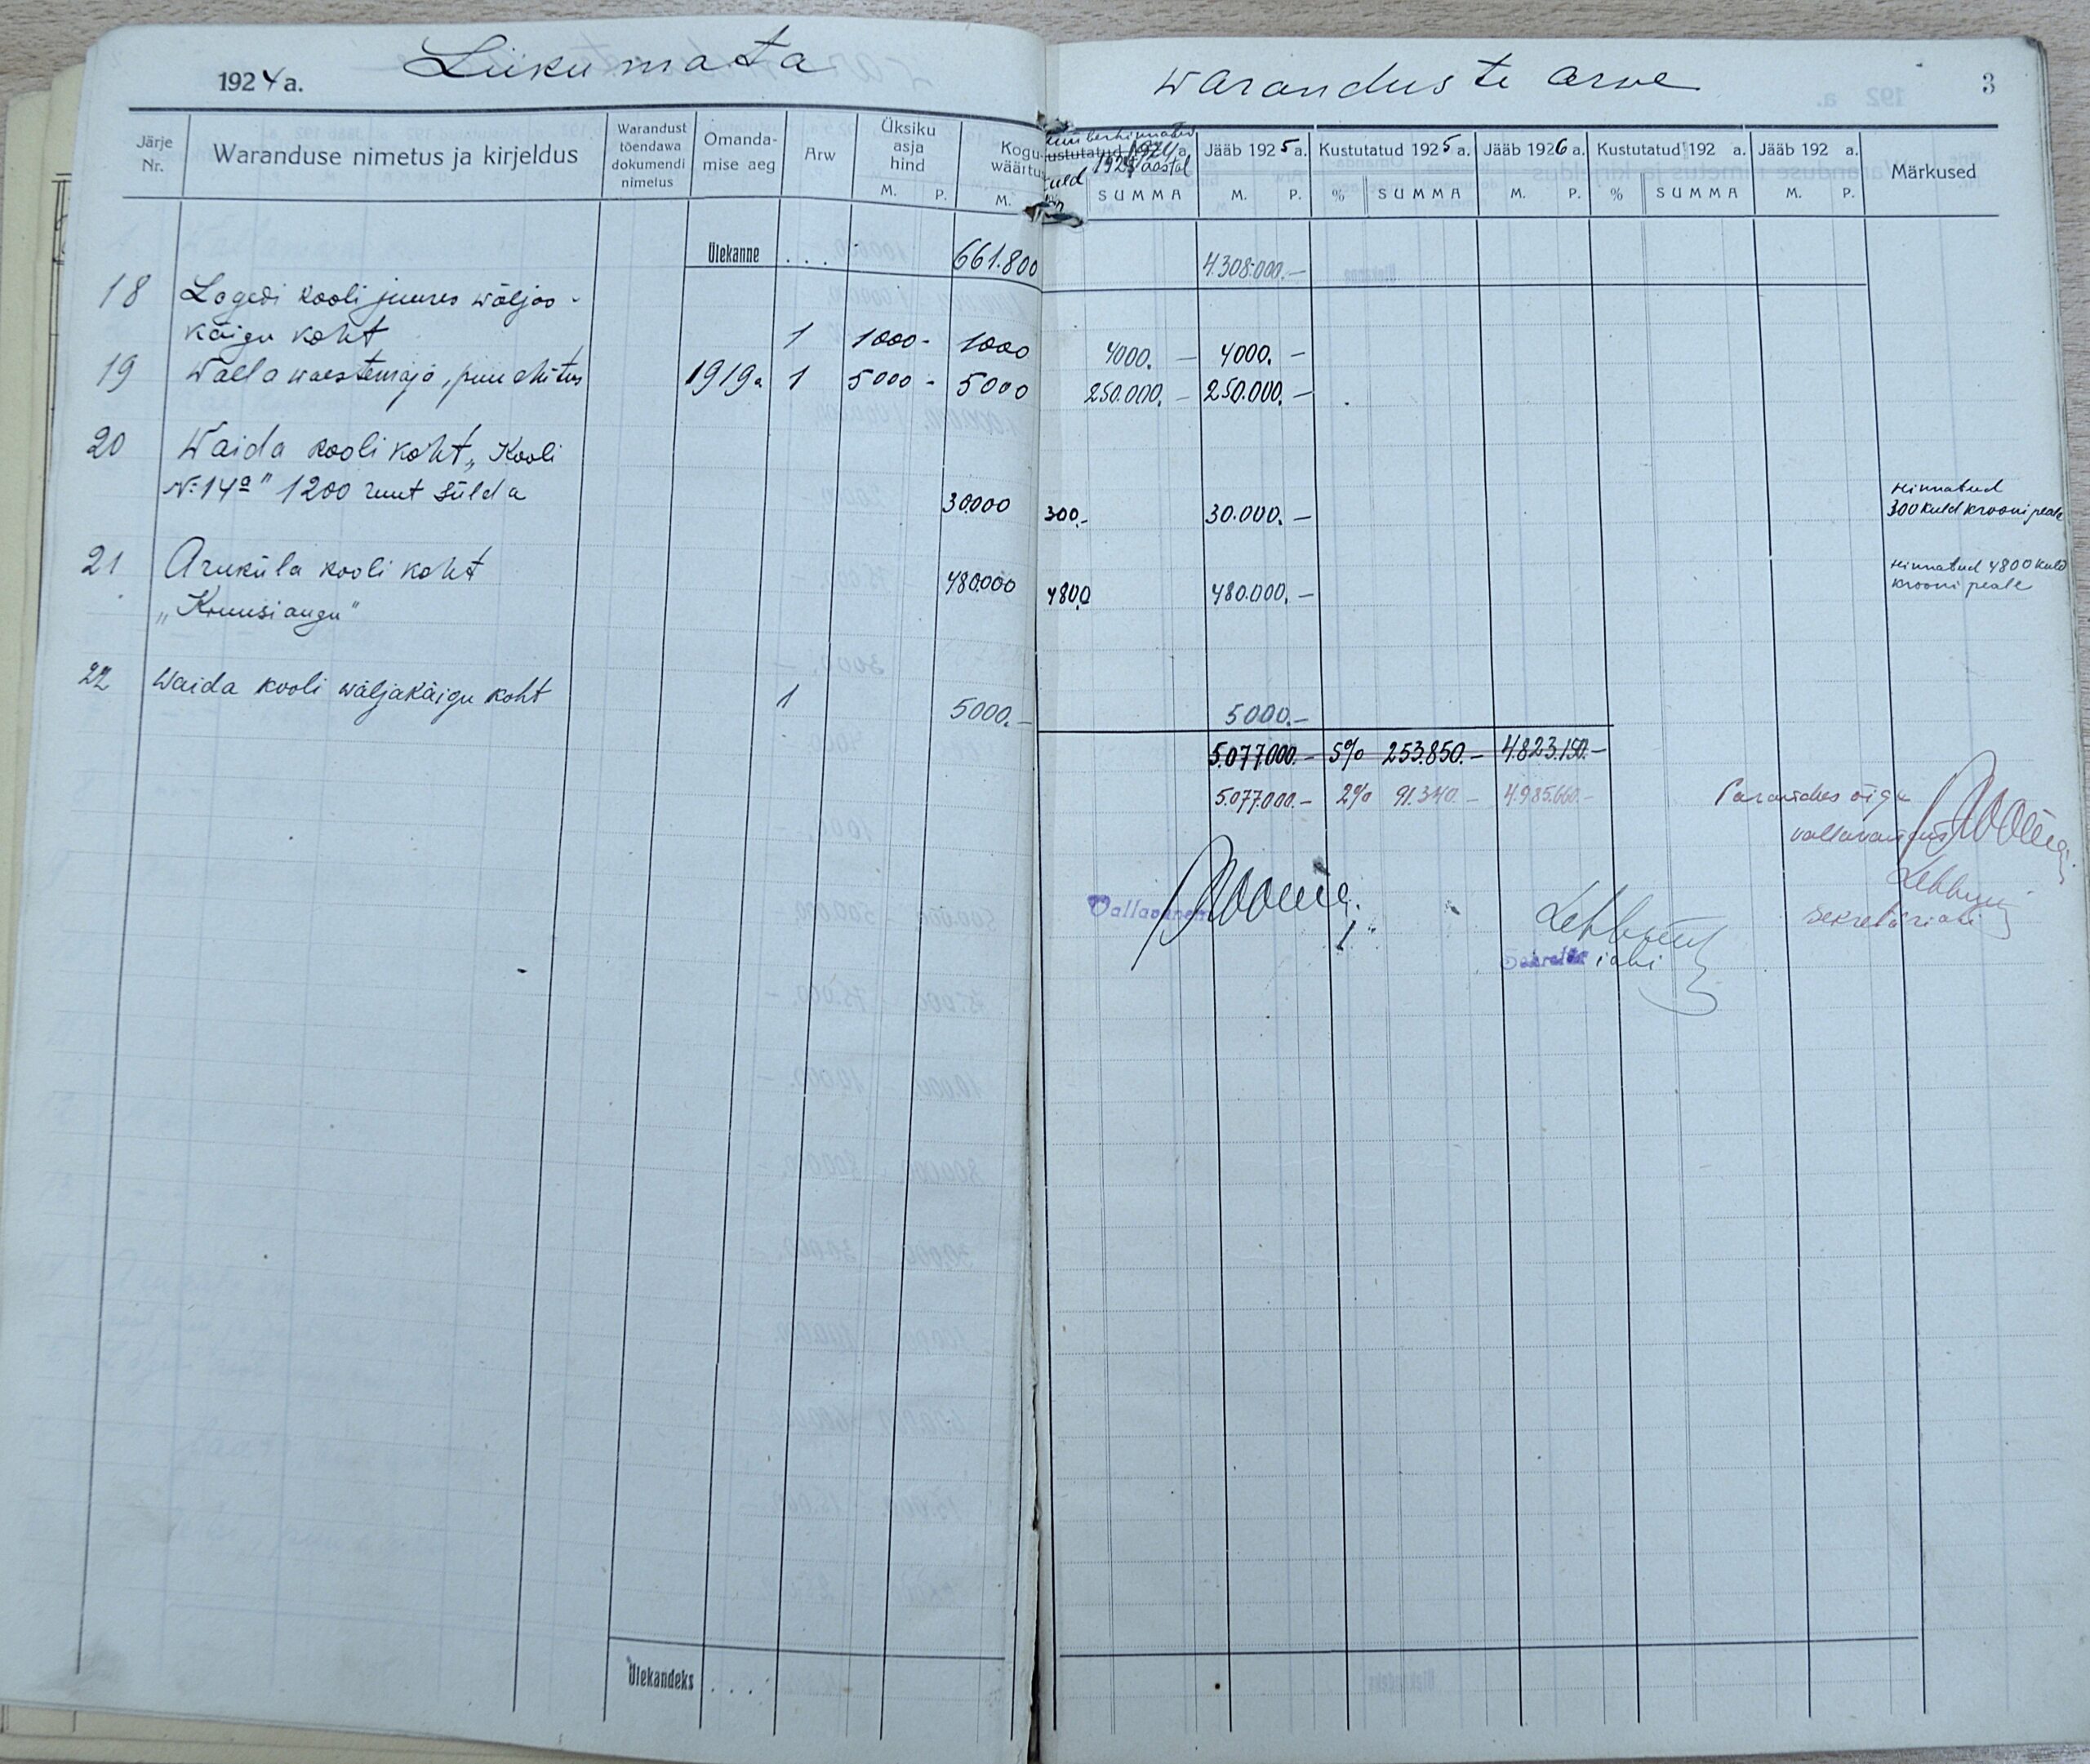 1924 a. Liikumata waranduste arwe 3
Järje Nr. Waranduse nimetus ja kirjeldus Warandust tõendawa dokumendi nimetus Omandamise aeg Arw Üksiku asja hind M. P. Kogu wäärtus M. ümberhinnatud 1924 aastal kuld SUMMA Jääb 1925 a. M. P. Kustutatud 1925 a. % SUMMA Jääb 1926 a. M. P. Kustutatud 192 a. % SUMMA Jääb 192 a. M. P. Märkused
Ülekanne . . . 661.800 4.308.000.—
18 Lagedi kooli juures wäljas-
käigu koht 1 1000- 1000 4000.— 4000.—
19 Walla waestemaja, puu ehitus 1919a 1 5000- 5000 250.000.— 250.000.—
20 Waida kooli koht „Kooli
N:14a" 1200 ruut sülda 30.000 300,- 30.000.— Hinnatud
300 kuld krooni peale
21 Aruküla kooli koht 480.000 4800 480.000.— Hinnatud 4800 kuld
krooni peale
„Kruusiaugu"
22 Waida kooli wäljakäigu koht 1 5000.— 5000.—
5.077.000.— 5% 253.850.— 4.823.150.—
5.077.000.— 2% 91.340.— 4.985.660.— Parandus õige
vallavanem
Sekretäri abi
Vallavanem
Sekretär i abi
Ülekandeks . . .